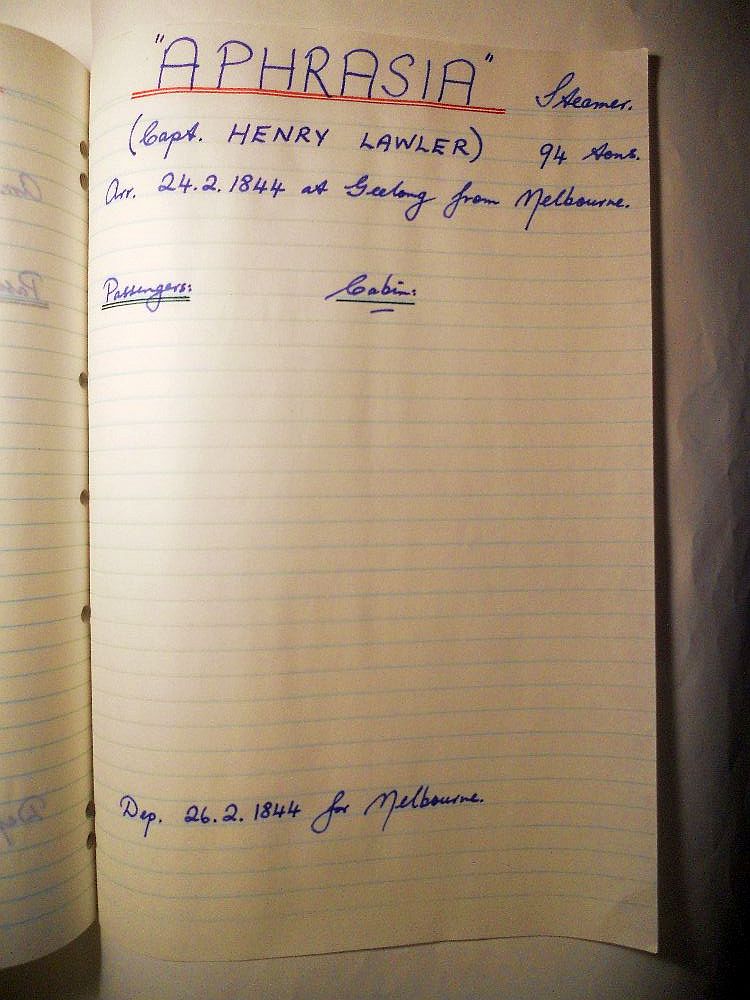 "APHRASIA" Steamer.
(Capt. HENRY LAWLER) 94 tons.
Arr. 24.2.1844 at Geelong from Melbourne.
Passengers: Cabin:
Dep. 26.2.1844 for Melbourne.